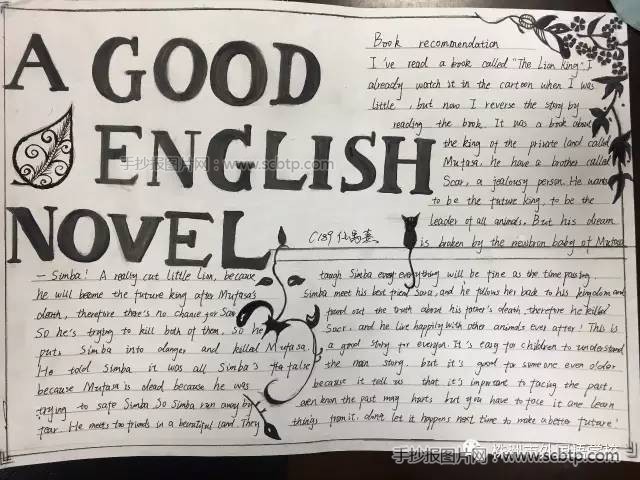 A GOOD
ENGLISH
NOVEL
Book recommendation
I've read a book called "The Lion King". I
already watch it in the cartoon when I was
little, but now I reverse the story by
reading the book. It was a book about
the king of the private land called
Mufasa. he have a brother called
Scar, a jealousy person. He wants
to be the future king, to be the
leader of all animals. But his dream
is broken by the newbron baby of Mufasa
C189
— Simba! A really cut little Lion, because
he will become the future king after Mufasa's
death, therefore there's no chance for Scar.
So he's trying to kill both of them. So he
puts Simba into danger and killed Mufasa.
He told Simba it was all Simba's the false
because Mufasa is dead because he was
trying to safe Simba So Simba ran away by
fear. He meets two friends in a beautiful land. They
taugh Simba every everything will be fine as the time passing.
Simba meet his best friend Sara, and he follows her back to his kingdom and
found out the truth about his father's death, therefore he killed
Scar. and he live happily with other animals ever after! This is
a good story for everyon. It's easy for children to understand
the main story. but it's good for someone even older
because it tell us that it's important to facing the past,
even known the past may harts but you have to face it and learn
things from it. don't let it happens next time to make a better future!
手抄报图片网:www.scbtp.com
手抄报图片网:www.scbtp.com